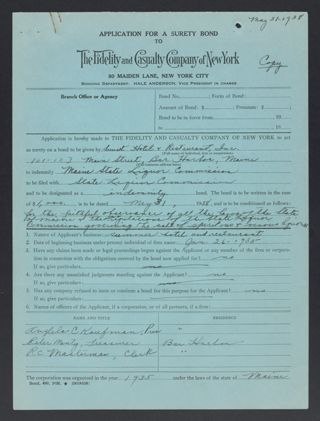 May 31-1938
APPLICATION FOR A SURETY BOND
TO
The Fidelity and Casualty Company of New York
Copy
80 MAIDEN LANE, NEW YORK CITY
BONDING DEPARTMENT: HALE ANDERSON, VICE PRESIDENT IN CHARGE
Branch Office or Agency
Bond No.
Amount of Bond $ Premium $
Bond to be in force from 19
to 19
Application is hereby made to THE FIDELITY AND CASUALTY COMPANY OF NEW YORK to act
as surety on a bond to be given by Hotel & Restaurant, Inc.
Main Street, Bar Harbor, Maine
to indemnify Maine State Liquor Commission
to be filed with State Liquor Commission
and to be designated as a bond. The bond to be written in the sum
of $ is to be dated May 31, 1938, and is to be conditioned as follows:
for the faithful observance of all the laws of the State
of Maine and regulations of the State Liquor
Commission governing the sale of spirituous & vinous liquors
1. Name of Applicant's business summer hotel and restaurant
2. Date of beginning business under present individual or firm name Jan. 26-1935
3. Have any claims been made or legal proceedings begun against the Applicant or any member of the firm or corporation in connection with the obligations covered by the bond now applied for? no
If so, give particulars
4. Are there any unsatisfied judgments standing against the Applicant? no
If so, give particulars
5. Has any company refused to issue or continue a bond for this purpose for the Applicant? no
If so, give particulars
6. Names of officers of the Applicant, if a corporation, or of all partners, if a firm:
NAME AND TITLE RESIDENCE
Angela C Kaufman, Pres "
Treasurer Bar Harbor
R.C. Masterman, Clerk "
The corporation was organized in the year 1935 under the laws of the state of Maine